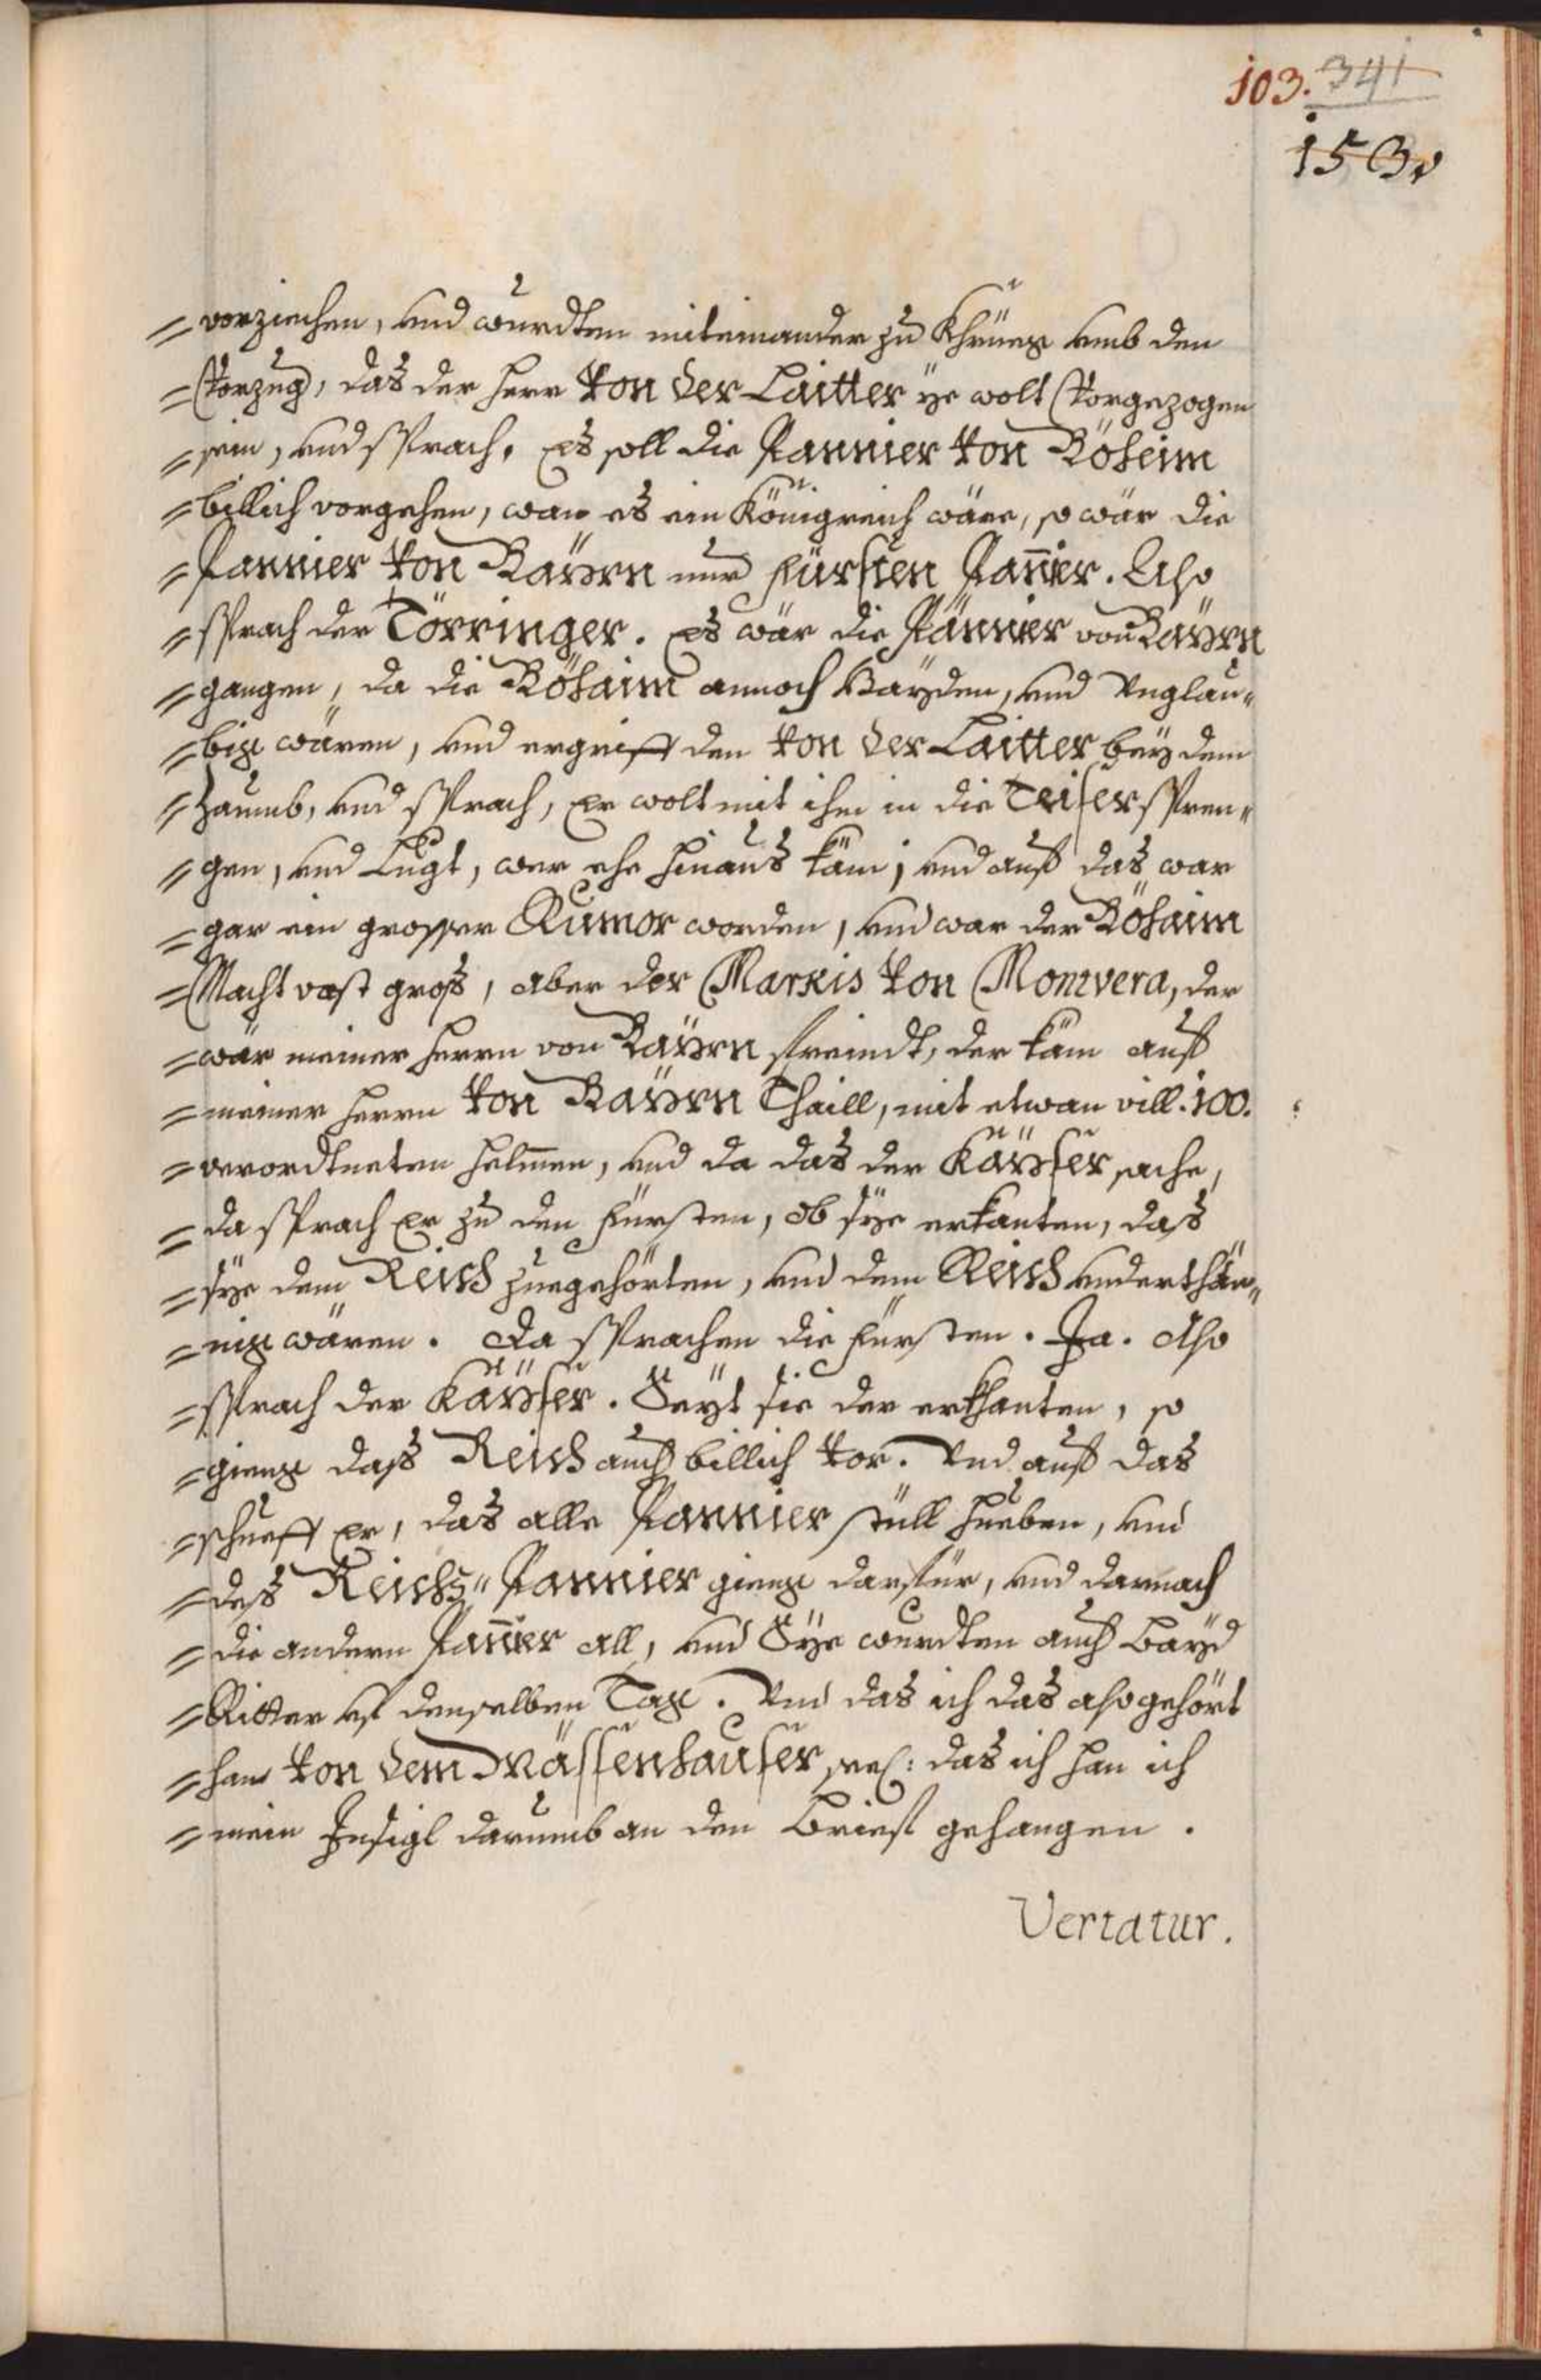 103. 341
1530
= vorziechen, und wurdten miteinander zu Khrüeg umb den
= Vorzug, das der Herr Von der Laitter ÿe wolt Vorgezogen
= sein, und sprach, Es soll die Pannier Von Böheim
= billich vorgehen, wan es ein Königreich wäre, so wär die
= Pannier Von Baÿrn nur Fürsten Pannier. Also
= sprach der Törringer. Es wär die Pännier von Baÿrn
= gangen, da die Böhaim annoch Haÿden, und Unglau"
= big wären, und ergriff den Von der Laitter beÿ dem
= Zaumb, und sprach, Er wolt mit ihm in die Teifer spren"
= gen, und Lugt, wer ehe hinaus käm; und auf das war
= gar ein grosser Rumor worden, und war der Böhaim
= Macht vast groß, aber der Markis Von Montvera, der
= wär meiner Herrn von Baÿrn freindt, der käm auf
= meiner Herrn Von Baÿrn Thaill, mit etwan vill. 100.
= verordtneten Helmen, und da das der Käÿser sache,
= da sprach Er zu den Fürsten, ob sÿe erkanten, das
= sÿe dem Reich zuegehörten, und dem Reich underthän"
= nig wären. Da sprachen die Fürsten. Ja. Also
= sprach der Käÿser. Seÿt sie der erkhanten, so
= gieng daß Reich auch billich Vor. Und auf das
= schueff Er, das alle Pannier still hueben, und
= deß Reichs" Pannier gieng darfür, und darnach
= die andern Pannier all, und Sÿe wurdten auch Baÿd
= Ritter uf denselben Tag. Und das ich das also gehört
= han Von dem Mässenhauser, sel: das ich han ich
= mein Insigl darumb an den Brief gehangen.
Vertatur.